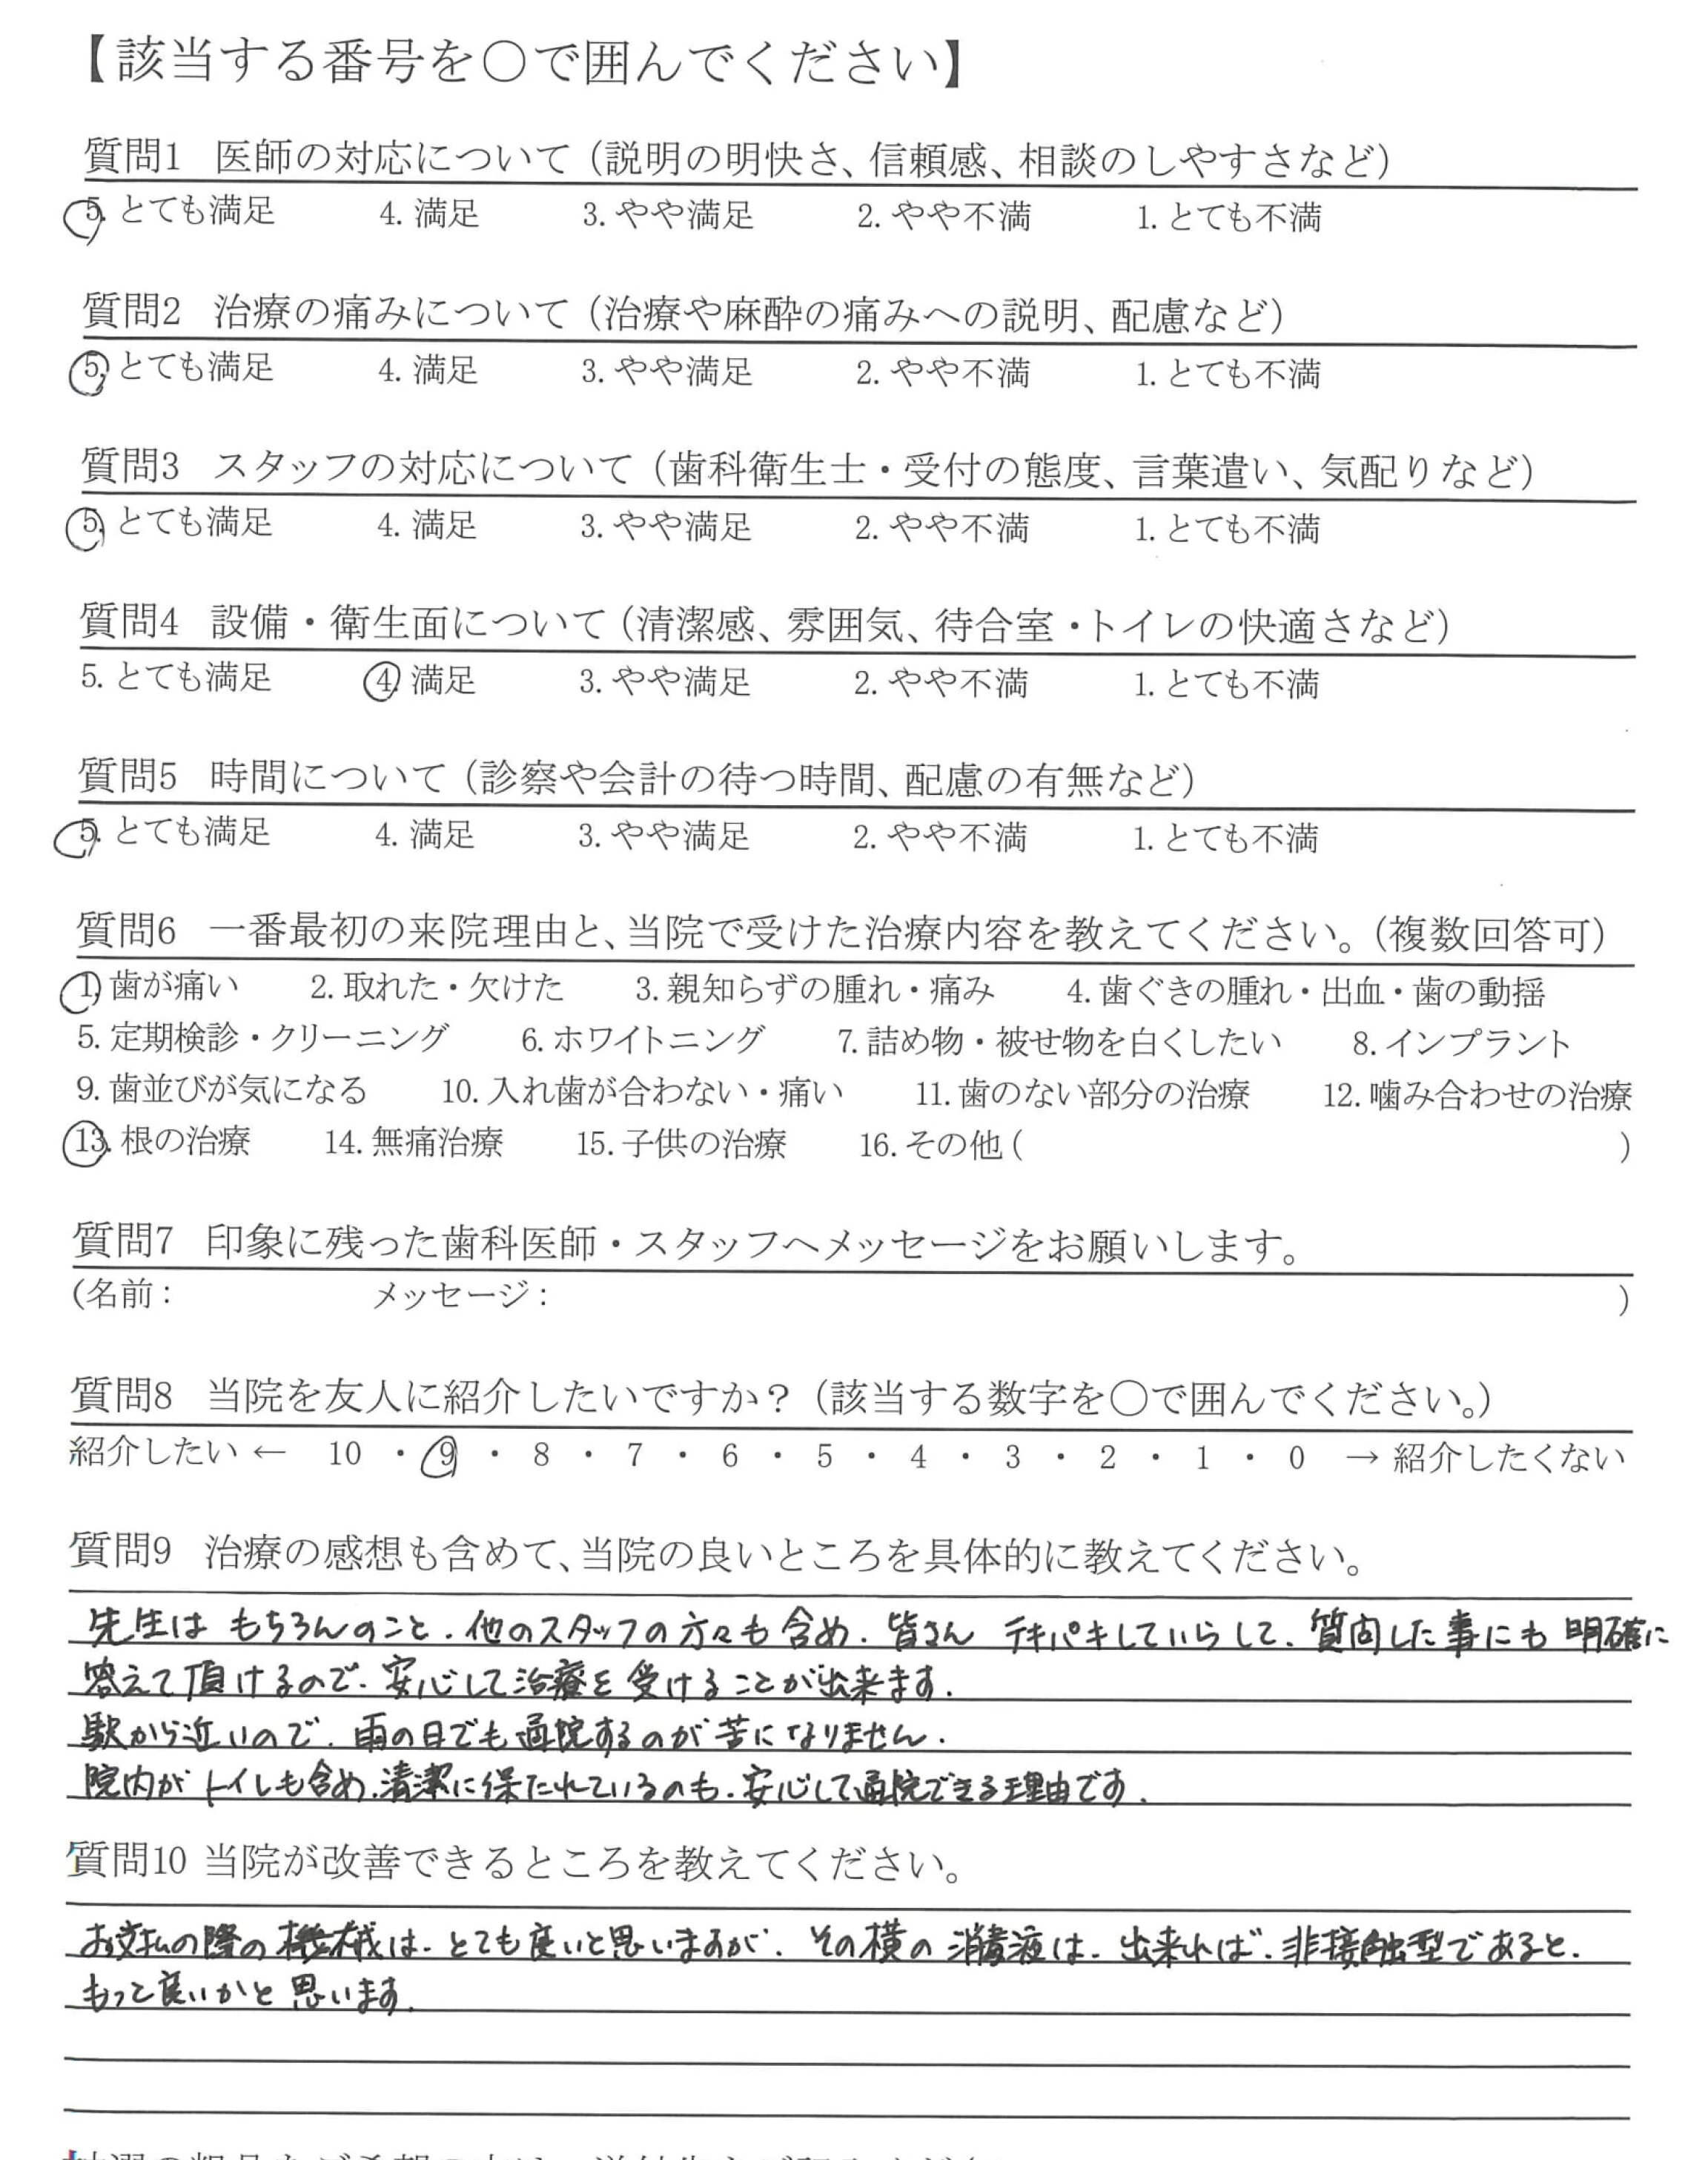 【該当する番号を○で囲んでください】
質問1 医師の対応について（説明の明快さ、信頼感、相談のしやすさなど）
5. とても満足 4. 満足 3. やや満足 2. やや不満 1. とても不満
質問2 治療の痛みについて（治療や麻酔の痛みへの説明、配慮など）
5. とても満足 4. 満足 3. やや満足 2. やや不満 1. とても不満
質問3 スタッフの対応について（歯科衛生士・受付の態度、言葉遣い、気配りなど）
5. とても満足 4. 満足 3. やや満足 2. やや不満 1. とても不満
質問4 設備・衛生面について（清潔感、雰囲気、待合室・トイレの快適さなど）
5. とても満足 4. 満足 3. やや満足 2. やや不満 1. とても不満
質問5 時間について（診察や会計の待つ時間、配慮の有無など）
5. とても満足 4. 満足 3. やや満足 2. やや不満 1. とても不満
質問6 一番最初の来院理由と、当院で受けた治療内容を教えてください。（複数回答可）
1. 歯が痛い 2. 取れた・欠けた 3. 親知らずの腫れ・痛み 4. 歯ぐきの腫れ・出血・歯の動揺
5. 定期検診・クリーニング 6. ホワイトニング 7. 詰め物・被せ物を白くしたい 8. インプラント
9. 歯並びが気になる 10. 入れ歯が合わない・痛い 11. 歯のない部分の治療 12. 噛み合わせの治療
13. 根の治療 14. 無痛治療 15. 子供の治療 16. その他（ ）
質問7 印象に残った歯科医師・スタッフへメッセージをお願いします。
（名前： メッセージ： ）
質問8 当院を友人に紹介したいですか？（該当する数字を○で囲んでください。）
紹介したい ← 10 ・ 9 ・ 8 ・ 7 ・ 6 ・ 5 ・ 4 ・ 3 ・ 2 ・ 1 ・ 0 → 紹介したくない
質問9 治療の感想も含めて、当院の良いところを具体的に教えてください。
先生は もちろんのこと、他のスタッフの方々も含め、皆さん テキパキしていらして、質問した事にも明確に
答えて頂けるので、安心して治療を受けることが出来ます。
駅から近いので、雨の日でも通院するのが苦になりません。
院内がトイレも含め、清潔に保たれているのも、安心して通院できる理由です。
質問10 当院が改善できるところを教えてください。
お支払の際の機械は、とても良いと思いますが、その横の消毒液は、出来れば、非接触型であると、
もっと良いかと思います。